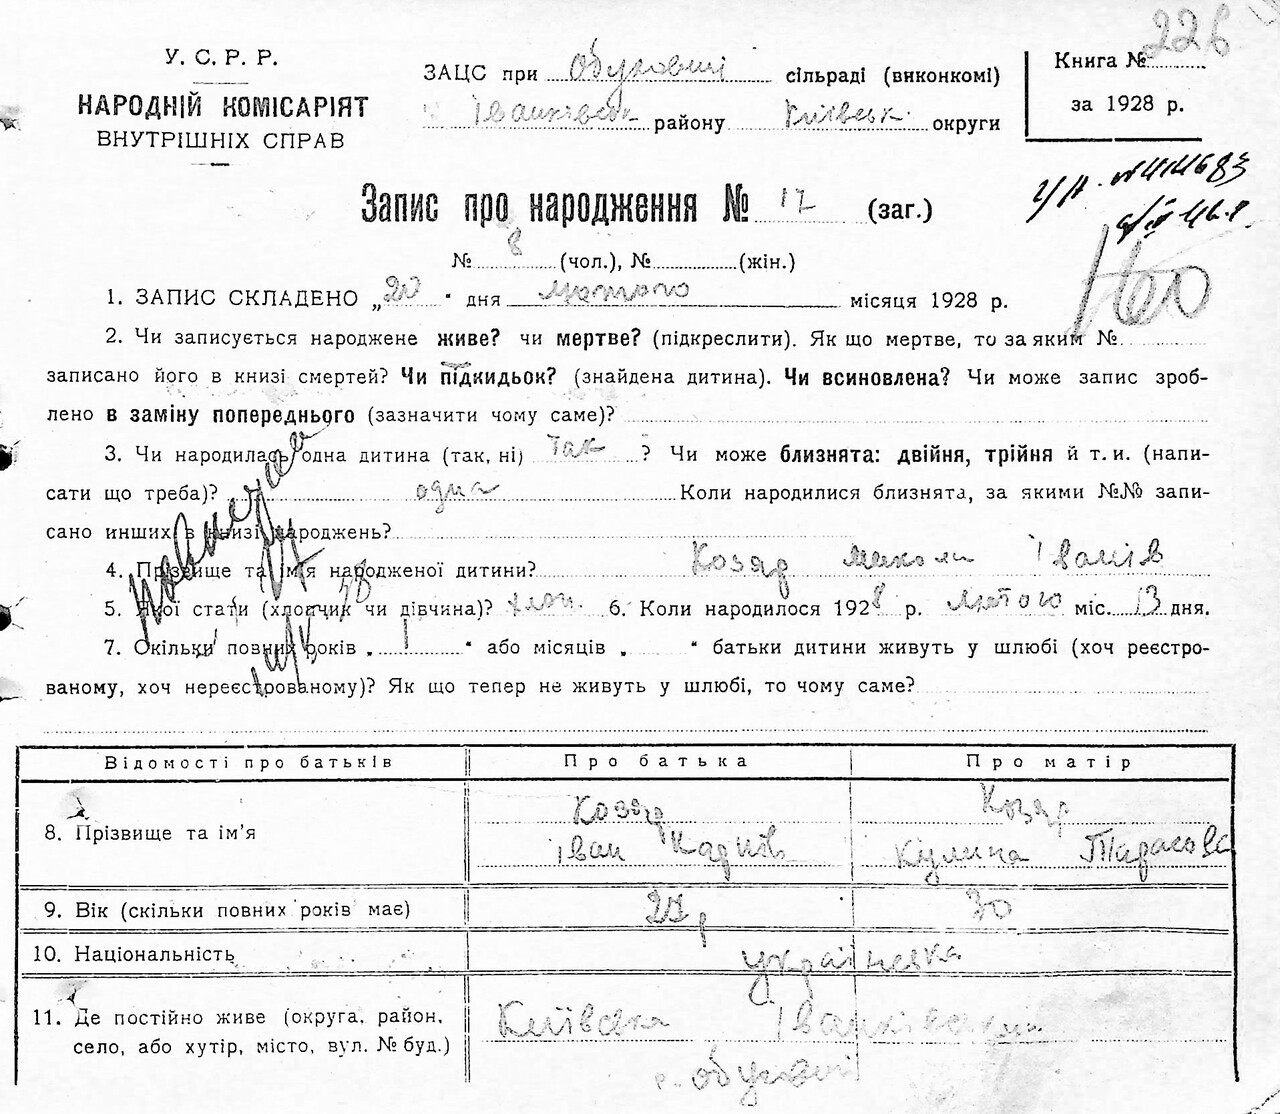 У. С. Р. Р.
НАРОДНІЙ КОМІСАРІЯТ
ВНУТРІШНІХ СПРАВ
ЗАЦС при Обуховиці сільраді (виконкомі)
Іванківськ району Київськ. округи
Книга № 226
за 1928 р.
Запис про народження № 17 (заг.)
№ 8 (чол.), № (жін.)
1. ЗАПИС СКЛАДЕНО „20" дня лютого місяця 1928 р.
2. Чи записується народжене живе? чи мертве? (підкреслити). Як що мертве, то за яким №
записано його в книзі смертей? Чи підкидьок? (знайдена дитина). Чи всиновлена? Чи може запис зроб-
лено в заміну попереднього (зазначити чому саме)?
3. Чи народилась одна дитина (так, ні) так ? Чи може близнята: двійня, трійня й т. и. (напи-
сати що треба)? одна Коли народилися близнята, за якими №№ запи-
сано инших в книзі народжень?
4. Прізвище та ім'я народженої дитини? Козяр Микола Іванів
5. Якої стати (хлопчик чи дівчина)? хлоп. 6. Коли народилося 1928 р. лютого міс. 13 дня.
7. Скільки повних років „ 1 " або місяців „ " батьки дитини живуть у шлюбі (хоч реєстро-
ваному, хоч нереєстрованому)? Як що тепер не живуть у шлюбі, то чому саме?
Відомості про батьків Про батька Про матір
8. Прізвище та ім'я Козяр Козяр
Іван Кулина Тарасова
9. Вік (скільки повних років має) 27 р 30
10. Національність українська
11. Де постійно живе (округа, район, Київська Іванківський
село, або хутір, місто, вул. № буд.) с. Обуховиці